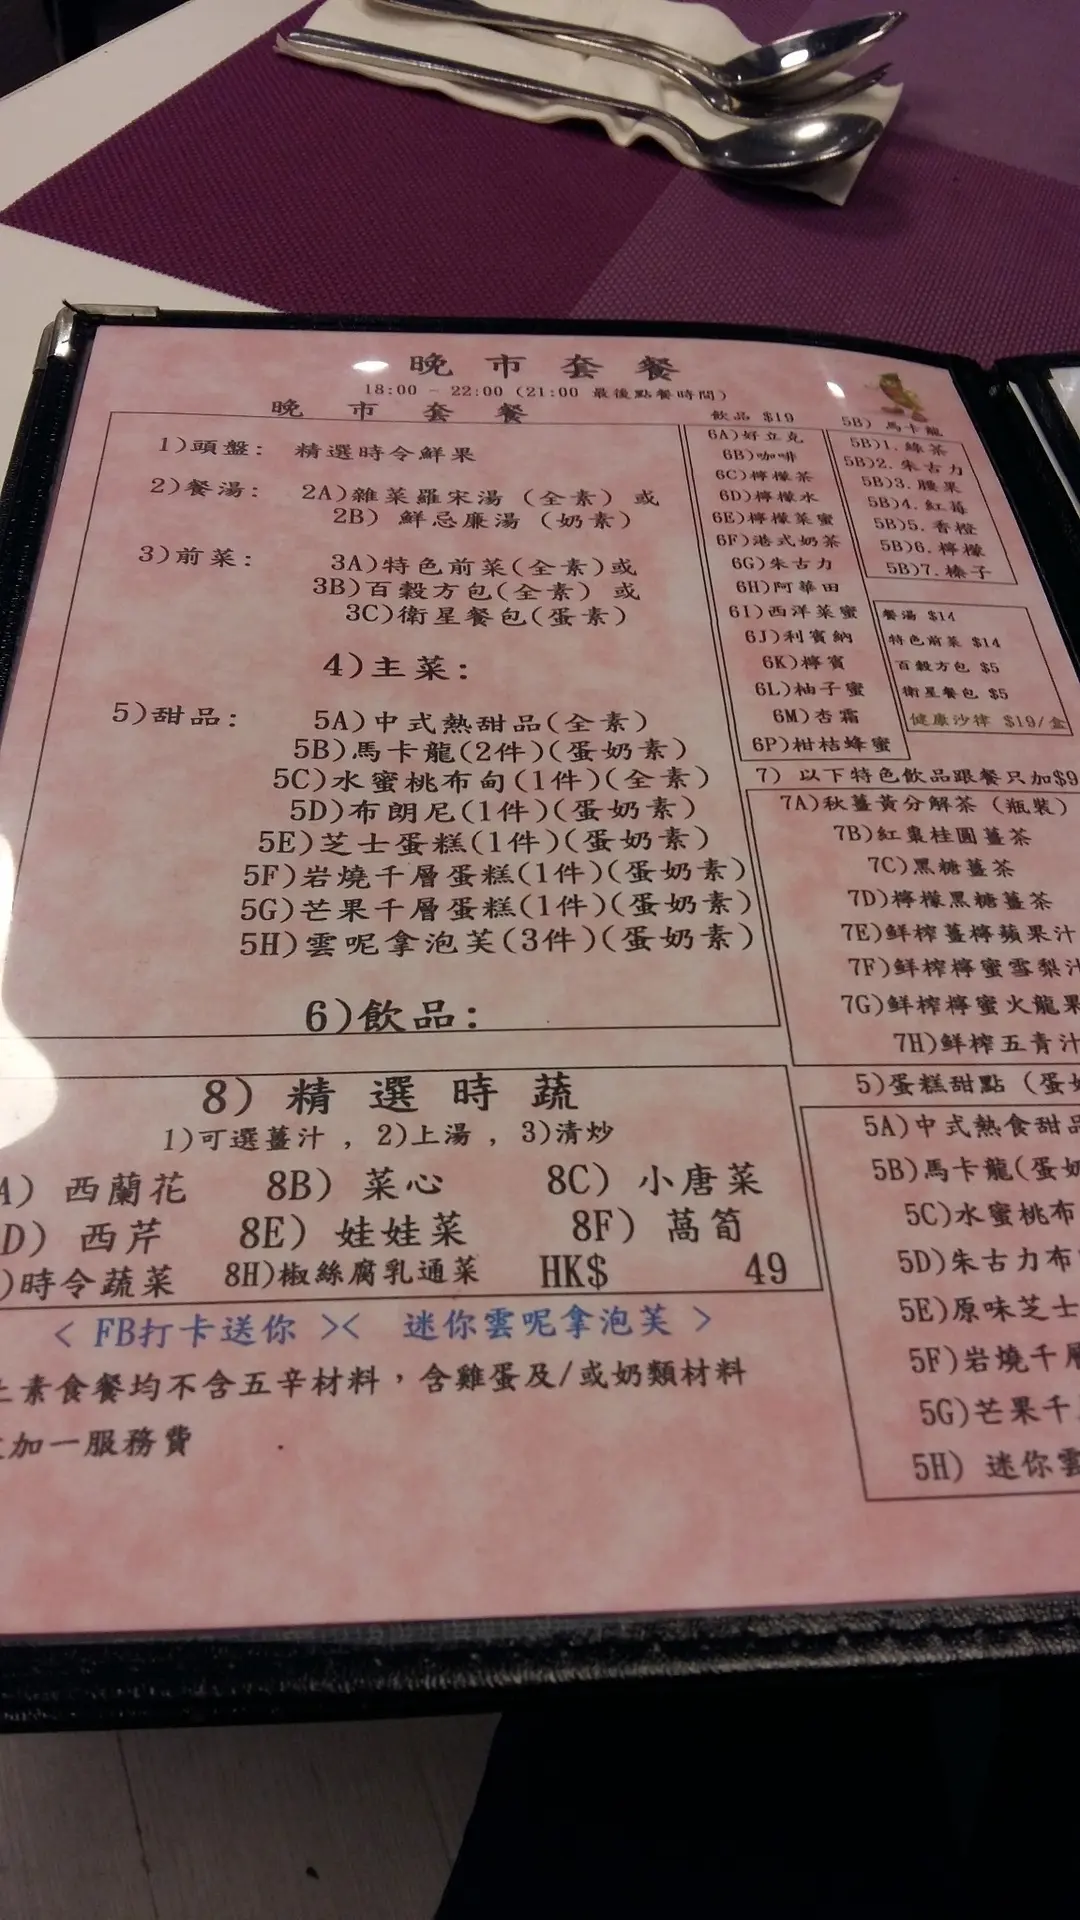 晚市套餐
18:00 - 22:00 (21:00 最後點餐時間)
晚市套餐
1)頭盤: 精選時令鮮果
2)餐湯: 2A)雜菜羅宋湯 (全素) 或
2B) 鮮忌廉湯 (奶素)
3)前菜: 3A)特色前菜(全素)或
3B)百穀方包(全素) 或
3C)衛星餐包(蛋素)
4)主菜:
5)甜品: 5A)中式熱甜品(全素)
5B)馬卡龍(2件)(蛋奶素)
5C)水蜜桃布甸(1件)(全素)
5D)布朗尼(1件)(蛋奶素)
5E)芝士蛋糕(1件)(蛋奶素)
5F)岩燒千層蛋糕(1件)(蛋奶素)
5G)芒果千層蛋糕(1件)(蛋奶素)
5H)雲呢拿泡芙(3件)(蛋奶素)
6)飲品:
飲品 $19
6A)好立克
6B)咖啡
6C)檸檬茶
6D)檸檬水
6E)檸檬菜蜜
6F)港式奶茶
6G)朱古力
6H)阿華田
6I)西洋菜蜜
6J)利賓納
6K)檸賓
6L)柚子蜜
6M)杏霜
6P)柑桔蜂蜜
5B) 馬卡龍
5B)1. 綠茶
5B)2. 朱古力
5B)3. 腰果
5B)4. 紅莓
5B)5. 香橙
5B)6. 檸檬
5B)7. 榛子
餐湯 $14
特色前菜 $14
百穀方包 $5
衛星餐包 $5
健康沙律 $19/盒
7) 以下特色飲品跟餐只加$9
7A)秋薑黃分解茶 (瓶裝)
7B)紅棗桂圓薑茶
7C)黑糖薑茶
7D)檸檬黑糖薑茶
7E)鮮榨薑檸蘋果汁
7F)鮮榨檸蜜雪梨汁
7G)鮮榨檸蜜火龍果
7H)鮮榨五青汁
5)蛋糕甜點 (蛋奶
5A)中式熱食甜品
5B)馬卡龍(蛋奶
5C)水蜜桃布
5D)朱古力布
5E)原味芝士
5F)岩燒千層
5G)芒果千
5H) 迷你雲
8) 精選時蔬
1)可選薑汁 , 2)上湯 , 3)清炒
A) 西蘭花 8B) 菜心 8C) 小唐菜
D) 西芹 8E) 娃娃菜 8F) 萵筍
)時令蔬菜 8H)椒絲腐乳通菜 HK$ 49
< FB打卡送你 >< 迷你雲呢拿泡芙 >
上素食餐均不含五辛材料，含雞蛋及/或奶類材料
加一服務費